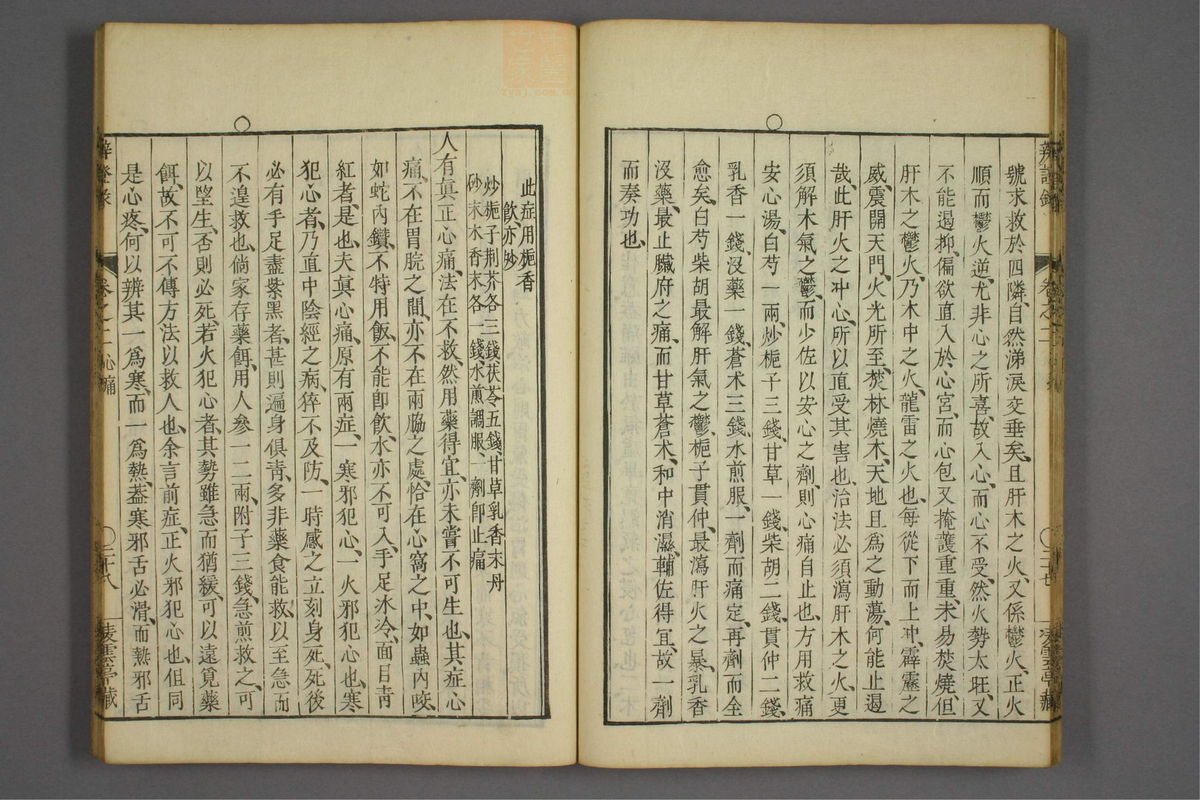 號求救於四隣、自然涕淚交垂矣、且肝木之火、又係鬱火、正火
順而鬱火逆、尤非心之所喜、故入心、而心不受、然火勢太旺、又
不能遏抑、偏欲直入於心宮、而心包又掩護重重、未易焚燒、但
肝木之鬱火、乃木中之火、龍雷之火也、每從下而上冲、霹靂之
威、震開天門、火光所至、焚林燒木、天地且為之動蕩、何能止遏
哉、此肝火之冲心、所以直受其害也、治法必須瀉肝木之火、更
須解木氣之鬱、而少佐以安心之劑、則心痛自止也、方用救痛
安心湯、白芍一兩、炒梔子三錢、甘草一錢、柴胡二錢、貫仲二錢、
乳香一錢、沒藥一錢、蒼术三錢、水煎服、一劑而痛定、再劑而全
愈矣、白芍柴胡、最解肝氣之鬱、梔子貫仲、最瀉肝火之暴、乳香
沒藥、最止臟府之痛、而甘草蒼术、和中消濕、輔佐得宜、故一劑
而奏功也、
辨證錄 卷之二
二十七
此症用梔香
飲亦妙
炒梔子荊芥各三錢茯苓五錢甘草乳香末丹
砂末木香末各一錢水煎調服、一劑卽止痛
人有眞正心痛、法在不救、然用藥得宜、亦未嘗不可生也、其症心
痛、不在胃脘之間、亦不在兩脇之處、恰在心窩之中、如蟲內咬、
如蛇內鑽、不特用飯不能、卽飲水亦不可入、手足冰冷、面目靑
紅者、是也、夫眞心痛、原有兩症、一寒邪犯心、一火邪犯心也、寒
犯心者、乃直中陰經之病、猝不及防、一時感之、立刻身死、死後
必有手足盡紫黑者、甚則遍身俱靑、多非藥食能救、以至急而
不遑救也、倘家存藥餌、用人參一二兩、附子三錢、急煎救之、可
以望生、否則必死、若火犯心者、其勢雖急而猶緩、可以遠覓藥
餌、故不可不傳方法以救人也、余言前症、正火邪犯心也、但同
是心疼、何以辨其一為寒、而一為熱、葢寒邪舌必滑、而熱邪舌
辨證錄 卷之二 心痛
二十八 凌雲亭藏